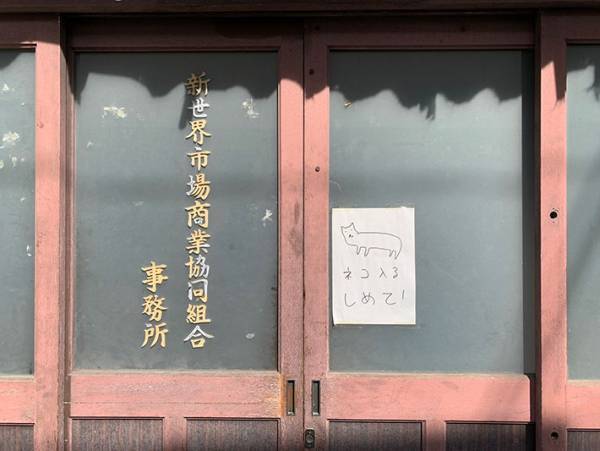 新世界市場商業協同組合
事務所
ネコ入る
しめて!